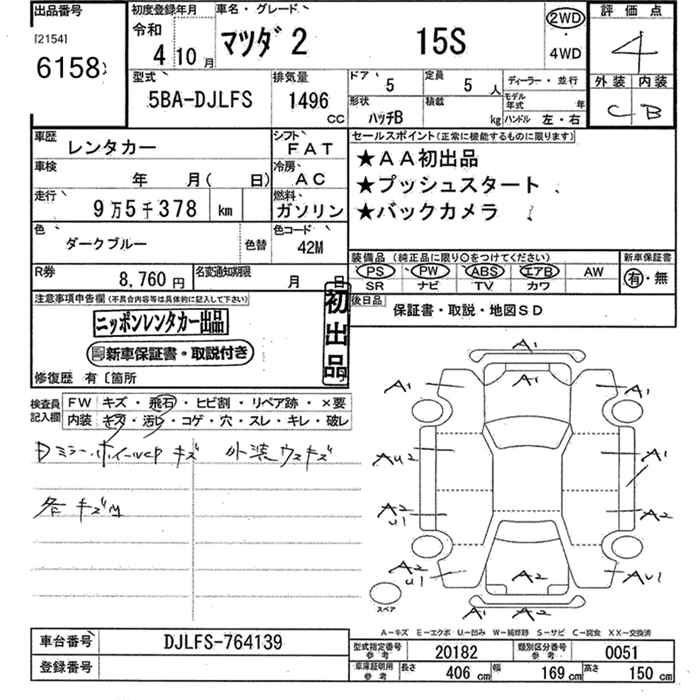 出品番号
[2154]
6158
初度登録年月
令和
4 10月
車名・グレード
マツダ2 15S
2WD
・
4WD
評価点
4
外装 内装
C B
型式
5BA-DJLFS
排気量
1496
CC
ドア
5
定員
5人
形状
ハッチB
積載
kg
ディーラー・並行
モデル年式 年
ハンドル 左・右
車歴
レンタカー
シフト
FAT
車検
年 月( 日)
冷房
AC
走行
9万5千378 km
燃料
ガソリン
色
ダークブルー
色替
色コード
42M
R券
8,760円
名変通知期限
月 日
セールスポイント(正常に機能するものに限ります)
★AA初出品
★プッシュスタート
★バックカメラ
装備品 (純正品に限り○をつけてください)
PS PW ABS エアB AW
SR ナビ TV カワ
新車保証書
有・無
後日品
保証書・取説・地図SD
注意事項申告欄(不具合内容等は具体的に記入して下さい)
ニッポンレンタカー出品
新車保証書・取説付き
初出品
修復歴 有〔箇所
検査員記入欄
FW キズ・飛石・ヒビ割・リペア跡・×要
内装 キズ・汚レ・コゲ・穴・スレ・キレ・破レ
キズ 外装ウスキズ
各キズM
A1
A1
A1
A1
AU2
A1
A2
U1
A2
A2
U1
A2
AU1
A1
A2
スペア
A-キズ E-エクボ U-凹み W-補修跡 S-サビ C-腐食 XX-交換済
車台番号
DJLFS-764139
登録番号
型式指定番号
参考
20182
類別区分番号
参考
0051
車庫証明用
参考
長さ 406cm 幅 169cm 高さ 150cm